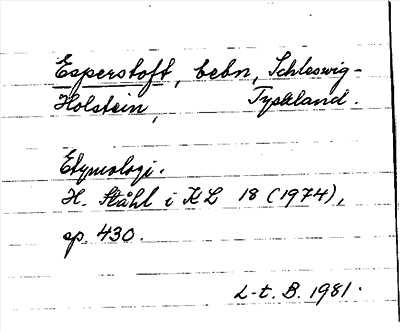 Esperstoft, bebn, Schleswig-
Holstein, Tyskland.
Etymologi.
H. Ståhl i KL 18 (1974),
sp. 430.
L-t. B. 1981.